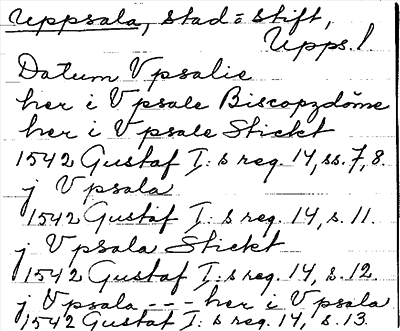 Uppsala, stad = stift,
Upps. l.
Datum Vpsalie
her i Vpsale Biscopzdöme
her i Vpsale Stickt
1542 Gustaf I:s reg. 14, ss. 7, 8.
j Vpsala
1542 Gustaf I:s reg. 14, s. 11.
j Vpsala Stickt
1542 Gustaf I:s reg. 14, s. 12.
j Vpsala --- her i Vpsala
1542 Gustaf I:s reg. 14, s. 13.